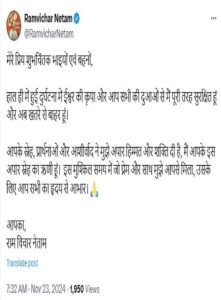 Ramvichar Netam
@RamvicharNetam
मेरे प्रिय शुभचिंतक भाइयों एवं बहनों,
हाल ही में हुई दुर्घटना में ईश्वर की कृपा और आप सभी की दुआओं से मैं पूरी तरह सुरक्षित हूं
और अब खतरे से बाहर हूं।
आपके स्नेह, प्रार्थनाओं और आशीर्वाद ने मुझे अपार हिम्मत और शक्ति दी है, मैं आपके इस
अपार स्नेह का ऋणी हूं। इस मुश्किल समय में जो प्रेम और साथ मुझे आपसे मिला, उसके
लिए आप सभी का हृदय से आभार।🙏
आपका,
राम विचार नेताम
Translate post
7:32 AM - Nov 23, 2024 · 1,950 Views